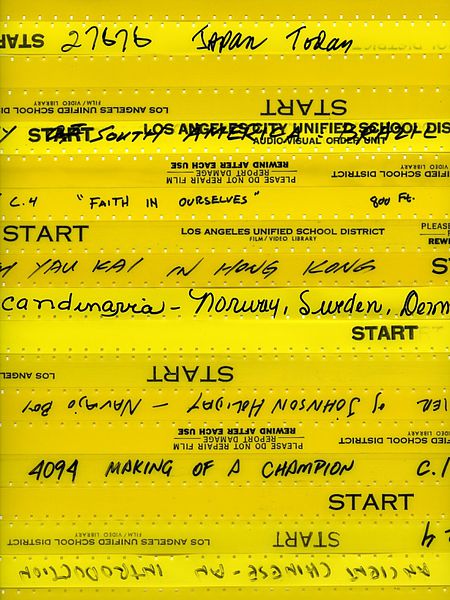 START 27676 Japan Today
OL DISTRICT
LOS ANGELES UNIFIED SCHOOL DI
FILM / VIDEO LIBRARY
START
START SOUTH AMERICA: BRAZIL
LOS ANGELES CITY UNIFIED SCHOOL DIS
AUDIO-VISUAL ORDER UNIT
PLEASE DO NOT REPAIR FILM
REPORT DAMAGE
REWIND AFTER EACH USE
IFIED SCHOOL DISTRICT
C.4 "FAITH IN OURSELVES" 800 Ft.
START LOS ANGELES UNIFIED SCHOOL DISTRICT
FILM / VIDEO LIBRARY
PLEASE
REWI
YAU KAI IN HONG KONG S
candinavia - Norway, Sweden, Denm
START
START LOS ANGEL
IER of JOHNSON HOLIDAY - NAVAJO BOY
PLEASE DO NOT REPAIR FILM
REPORT DAMAGE
REWIND AFTER EACH USE
IFIED SCHOOL DISTRICT
4094 MAKING OF A CHAMPION C.1
START
START LOS ANGELES UNIFIED SCHOOL DISTRICT
FILM / VIDEO LIBRARY
ANCIENT CHINESE - AN INTRODUCTION